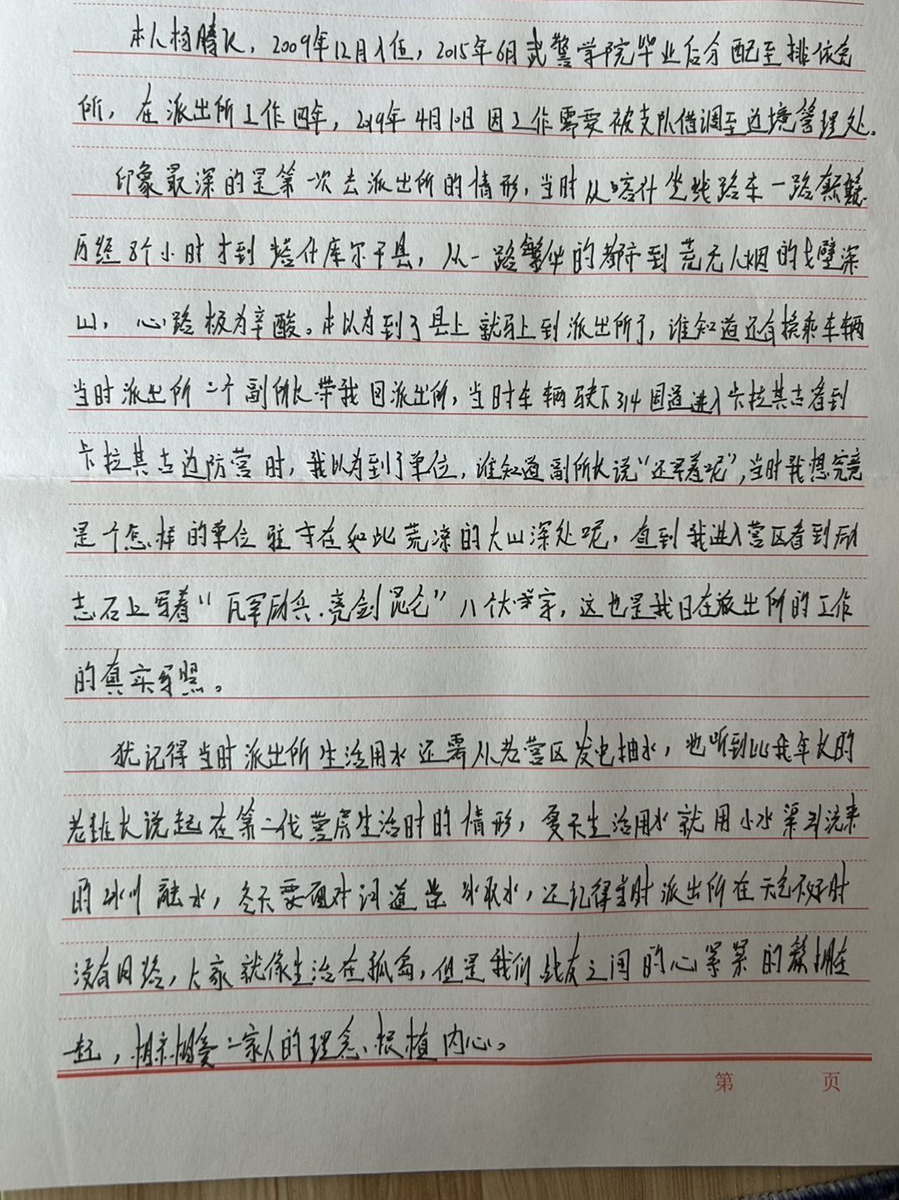 本人杨腾飞，2009年12月入伍，2015年6月武警学院毕业后分配至排依克
所，在派出所工作四年，2019年4月10日因工作需要被支队借调至边境管理处。
印象最深的是第一次去派出所的情形，当时从喀什坐线路车一路颠簸
历经8个小时才到塔什库尔干县，从一路繁华的都市到荒无人烟的戈壁深
山，心路极为辛酸。本以为到了县上就马上到派出所了，谁知道还有换乘车辆
当时派出所一个副所长带我回派出所，当时车辆驶下314国道进入卡拉其古看到
卡拉其古边防营时，我以为到了单位，谁知道副所长说“还早着呢”，当时我想究竟
是个怎样的单位驻守在如此荒凉的大山深处呢，直到我进入营区看到励
志石上写着“瓦罕励兵·亮剑昆仑”八个大字，这也是我日在派出所的工作
的真实写照。
犹记得当时派出所生活用水还需从老营区发电抽水，也听到比我年长的
老班长说起在第二代营房生活时的情形，夏天生活用水就用小水渠引流来
的冰川融水，冬天要面对河道凿冰取水，还记得当时派出所在天气不好时
没有网络，大家就像生活在孤岛，但是我们战友之间的心紧紧的簇拥在
一起，相亲相爱一家人的理念根植内心。
第 页